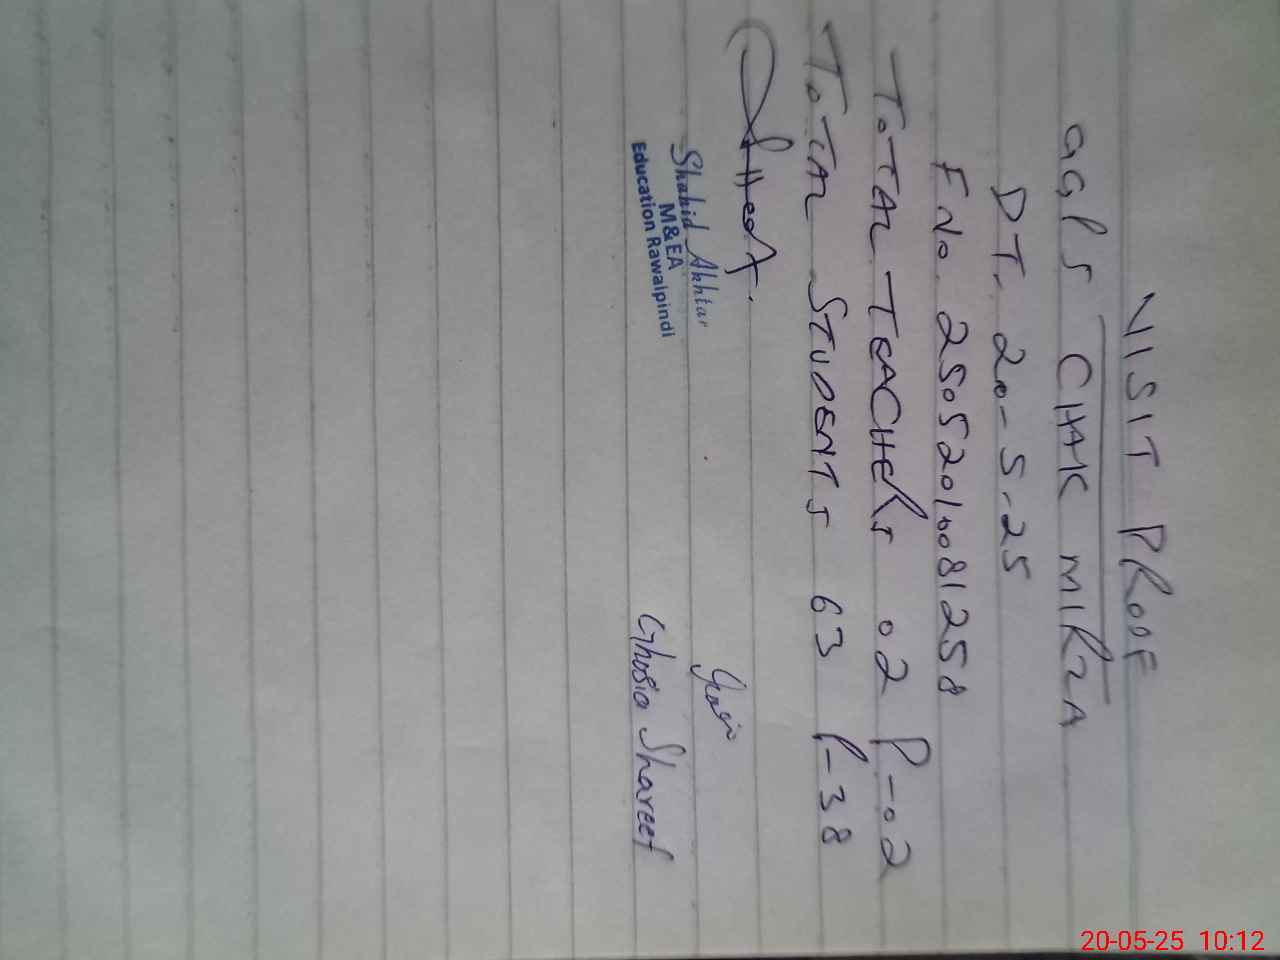 VISIT PROOF
GGPS CHAK MIRZA
DT. 20-5-25
F No. 25052010081258
TOTAL TEACHERS 02 P-02
TOTAL STUDENTS 63 P-38
Shahid Akhtar
M&EA
Education Rawalpindi
Ghosia Shareef
20-05-25 10:12